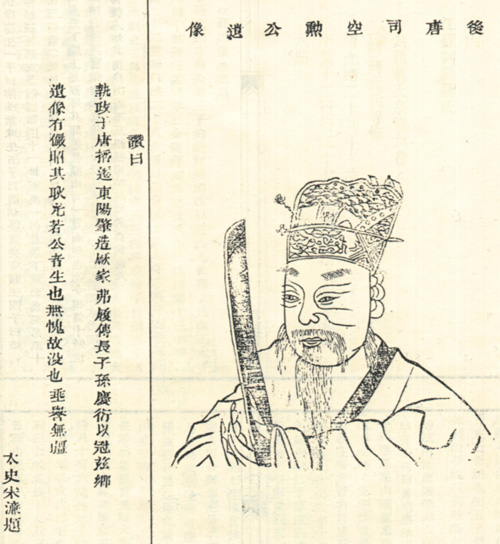 後唐司空勲公遺像
讚曰
執政于唐播遷東陽肇造厥家弗履傳長子孫慶衍以冠兹鄉
遺像有儼昭其耿光若公者生也無愧故没也垂譽無疆
太史宋濂題